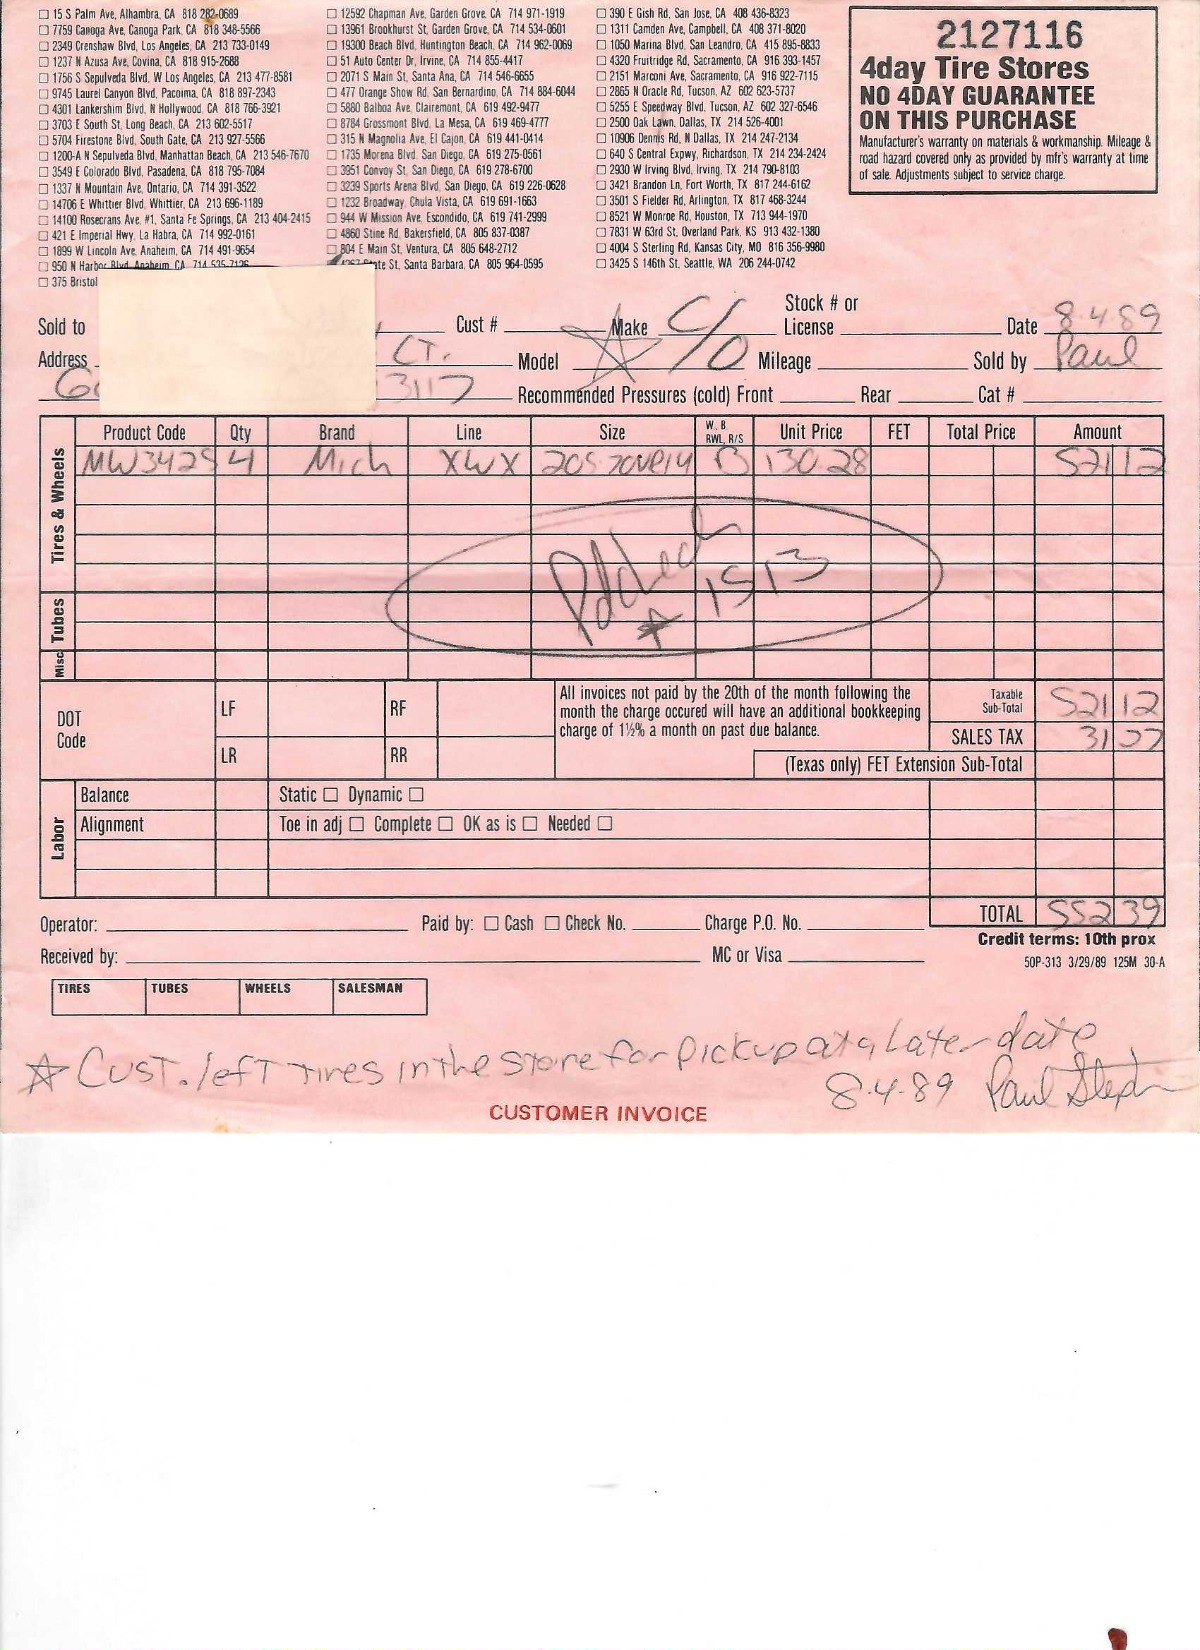 ☐ 15 S Palm Ave, Alhambra, CA 818 282-0689
☐ 7759 Canoga Ave, Canoga Park, CA 818 348-5566
☐ 2349 Crenshaw Blvd, Los Angeles, CA 213 733-0149
☐ 1237 N Azusa Ave, Covina, CA 818 915-2688
☐ 1756 S Sepulveda Blvd, W Los Angeles, CA 213 477-8581
☐ 9745 Laurel Canyon Blvd, Pacoima, CA 818 897-2343
☐ 4301 Lankershim Blvd, N Hollywood, CA 818 766-3921
☐ 3703 E South St, Long Beach, CA 213 602-5517
☐ 5704 Firestone Blvd, South Gate, CA 213 927-5566
☐ 1200-A N Sepulveda Blvd, Manhattan Beach, CA 213 546-7670
☐ 3549 E Colorado Blvd, Pasadena, CA 818 795-7084
☐ 1337 N Mountain Ave, Ontario, CA 714 391-3522
☐ 14706 E Whittier Blvd, Whittier, CA 213 696-1189
☐ 14100 Rosecrans Ave, #1, Santa Fe Springs, CA 213 404-2415
☐ 421 E Imperial Hwy, La Habra, CA 714 992-0161
☐ 1899 W Lincoln Ave, Anaheim, CA 714 491-9654
☐ 950 N Harbor Blvd, Anaheim, CA 714 535-7126
☐ 375 Bristol
☐ 12592 Chapman Ave, Garden Grove, CA 714 971-1919
☐ 13961 Brookhurst St, Garden Grove, CA 714 534-0601
☐ 19300 Beach Blvd, Huntington Beach, CA 714 962-0069
☐ 51 Auto Center Dr, Irvine, CA 714 855-4417
☐ 2071 S Main St, Santa Ana, CA 714 546-6655
☐ 477 Orange Show Rd, San Bernardino, CA 714 884-6044
☐ 5880 Balboa Ave, Clairemont, CA 619 492-9477
☐ 8784 Grossmont Blvd, La Mesa, CA 619 469-4777
☐ 315 N Magnolia Ave, El Cajon, CA 619 441-0414
☐ 1735 Morena Blvd, San Diego, CA 619 275-0561
☐ 3951 Convoy St, San Diego, CA 619 278-6700
☐ 3239 Sports Arena Blvd, San Diego, CA 619 226-0628
☐ 1232 Broadway, Chula Vista, CA 619 691-1663
☐ 944 W Mission Ave, Escondido, CA 619 741-2999
☐ 4860 Stine Rd, Bakersfield, CA 805 837-0387
☐ 804 E Main St, Ventura, CA 805 648-2712
State St, Santa Barbara, CA 805 964-0595
☐ 390 E Gish Rd, San Jose, CA 408 436-8323
☐ 1311 Camden Ave, Campbell, CA 408 371-8020
☐ 1050 Marina Blvd, San Leandro, CA 415 895-8833
☐ 4320 Fruitridge Rd, Sacramento, CA 916 393-1457
☐ 2151 Marconi Ave, Sacramento, CA 916 922-7115
☐ 2865 N Oracle Rd, Tucson, AZ 602 623-5737
☐ 5255 E Speedway Blvd, Tucson, AZ 602 327-6546
☐ 2500 Oak Lawn, Dallas, TX 214 526-4001
☐ 10906 Dennis Rd, N Dallas, TX 214 247-2134
☐ 640 S Central Expwy, Richardson, TX 214 234-2424
☐ 2930 W Irving Blvd, Irving, TX 214 790-8103
☐ 3421 Brandon Ln, Fort Worth, TX 817 244-6162
☐ 3501 S Fielder Rd, Arlington, TX 817 468-3244
☐ 8521 W Monroe Rd, Houston, TX 713 944-1970
☐ 7831 W 63rd St, Overland Park, KS 913 432-1380
☐ 4004 S Sterling Rd, Kansas City, MO 816 356-9980
☐ 3425 S 146th St, Seattle, WA 206 244-0742
2127116
4day Tire Stores
NO 4DAY GUARANTEE
ON THIS PURCHASE
Manufacturer's warranty on materials & workmanship. Mileage &
road hazard covered only as provided by mfr's warranty at time
of sale. Adjustments subject to service charge.
Sold to Cust # Make C/O Stock # or License Date 8-4-89
Address CT. Model Mileage Sold by Paul
3117 Recommended Pressures (cold) Front Rear Cat #
Product Code Qty Brand Line Size W, B, RWL, R/S Unit Price FET Total Price Amount
Tires & Wheels
MW34295 4 Mich XWX 205 70VR14 B 130.28 521 12
Pd check
# 1513
Tubes
Misc
DOT Code LF RF
LR RR
All invoices not paid by the 20th of the month following the
month the charge occured will have an additional bookkeeping
charge of 1½% a month on past due balance.
Taxable Sub-Total 521 12
SALES TAX 31 27
(Texas only) FET Extension Sub-Total
Labor
Balance Static ☐ Dynamic ☐
Alignment Toe in adj ☐ Complete ☐ OK as is ☐ Needed ☐
TOTAL 552 39
Operator: Paid by: ☐ Cash ☐ Check No. Charge P.O. No.
Credit terms: 10th prox
Received by: MC or Visa
50P-313 3/29/89 125M 30-A
TIRES TUBES WHEELS SALESMAN
☆ Cust. left tires in the store for pickup at a later date
8-4-89 Paul
CUSTOMER INVOICE